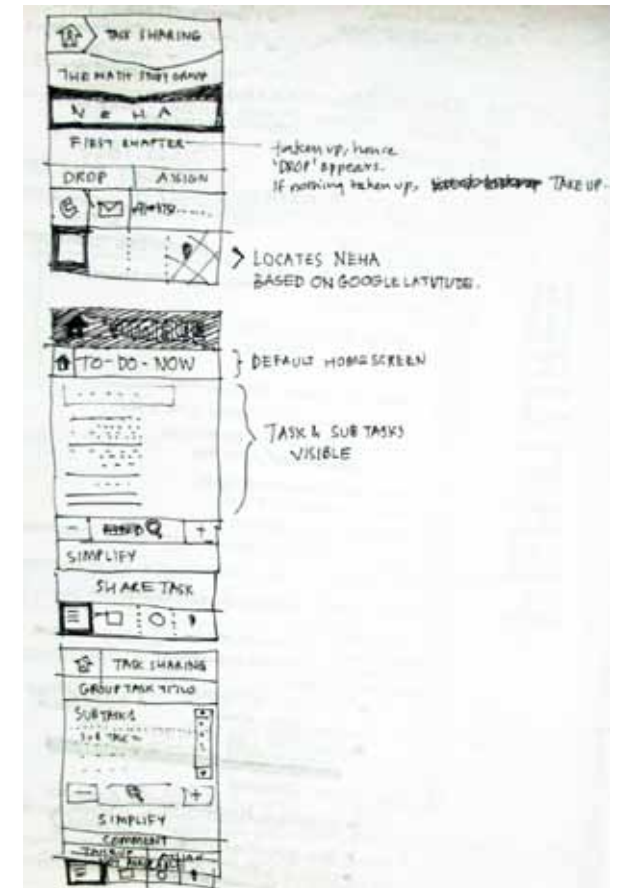 TASK SHARING
THE MATH STUDY GROUP
N E H A
FIRST CHAPTER
taken up, hence
'DROP' appears.
If nothing taken up, TAKE UP.
DROP ASSIGN
> LOCATES NEHA
BASED ON GOOGLE LATITUDE.
TO-DO-NOW
} DEFAULT HOMESCREEN
TASK & SUB TASKS
VISIBLE
- +
SIMPLIFY
SHARE TASK
TASK SHARING
GROUP TASK TITLE
SUBTASKS
SUB TASK
- +
SIMPLIFY
COMMENT